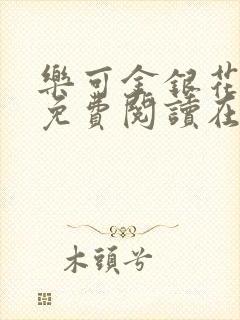 樂可金銀花
免費閱讀在
木頭兮